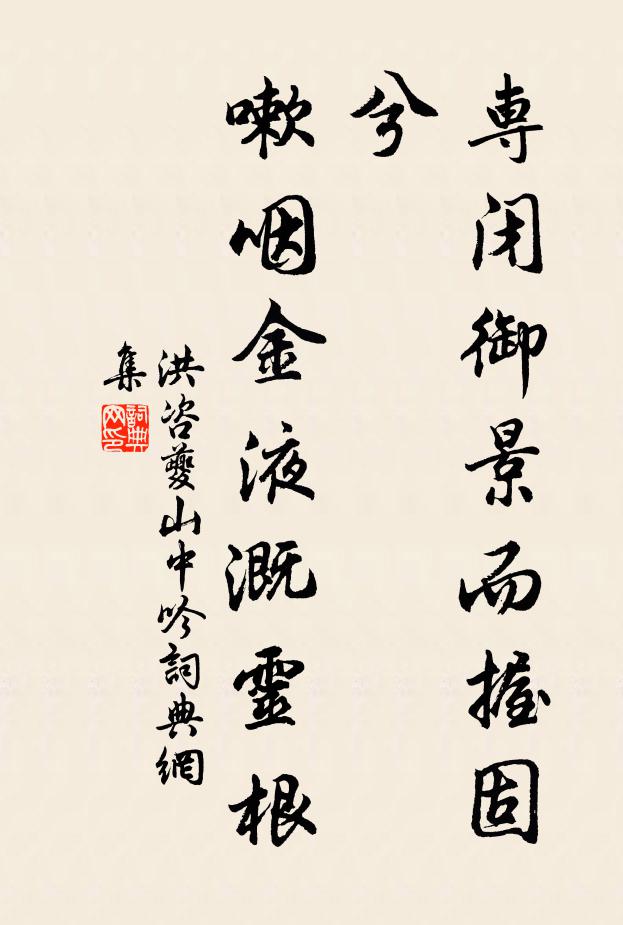 専闭御景而握固
兮
嗽咽金液溉靈根
洪咨夔山中吟詞典網
集
詞典
网印